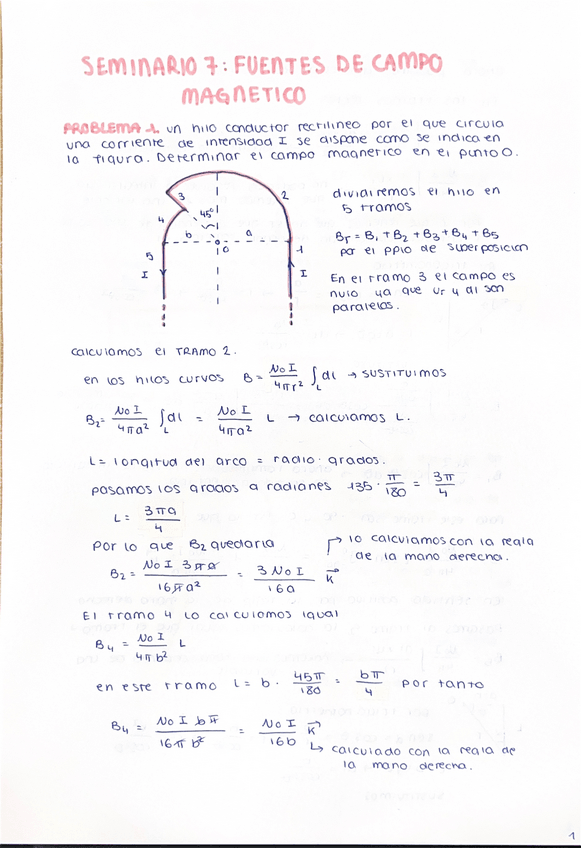 SEMINARIO 7: FUENTES DE CAMPO
MAGNETICO
PROBLEMA 1. un hilo conductor rectilineo por el que circula
una corriente de intensidad I se dispone como se indica en
la figura. Determinar el campo magnetico en el punto O.
3
2
4
45º
b
a
O
5
1
I
I
dividiremos el hilo en
5 tramos
B_T = B₁ + B₂ + B₃ + B₄ + B₅
por el ppio de superposicion
En el tramo 3 el campo es
nulo ya que ur y dl son
paralelos.
calculamos el TRAMO 2.
en los hilos curvos B = N₀ I / 4πr² ∫_L dl → SUSTITUIMOS
B₂ = N₀ I / 4πa² ∫_L dl = N₀ I / 4πa² L → calculamos L.
L = longitud del arco = radio · grados.
pasamos los grados a radianes 135 · π/180 = 3π/4
L = 3πa/4
Por lo que B₂ quedaria
lo calculamos con la regla
de la mano derecha.
B₂ = N₀ I 3πa / 16πa² = 3 N₀ I / 16a K⃗
El tramo 4 lo calculamos igual
B₄ = N₀ I / 4πb² L
en este tramo L = b · 45π/180 = bπ/4 por tanto
B₄ = N₀ I bπ / 16π b² = N₀ I / 16b K⃗
↳ calculado con la regla de
la mano derecha.
1